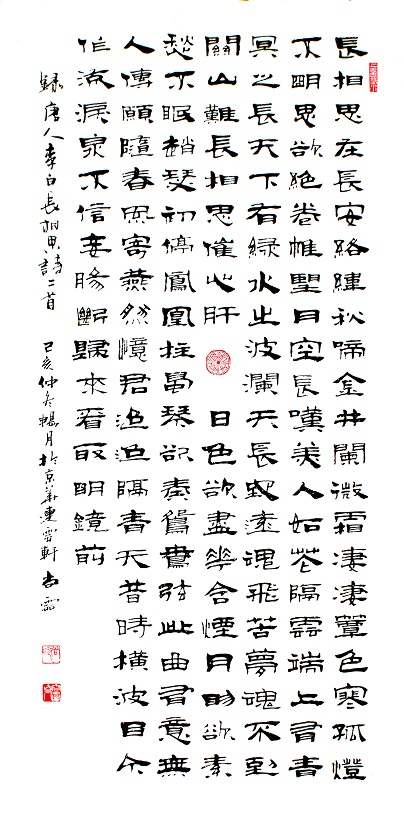 長相思在長安絡緯秋啼金井闌微霜淒淒簟色寒孤燈
不明思欲絕卷帷望月空長嘆美人如花隔雲端上有青
冥之長天下有綠水之波瀾天長路遠魂飛苦夢魂不到
關山難長相思催心肝
日色欲盡華含煙月明欲素
愁不眠趙瑟初停鳳凰柱蜀琴欲奏鴛鴦弦此曲有意無
人傳願隨春風寄燕然憶君迢迢隔青天昔時橫波目今
作流淚泉不信妾腸斷歸來看取明鏡前
錄唐人李白長相思詩二首 己亥仲冬暢月於京華連雲軒